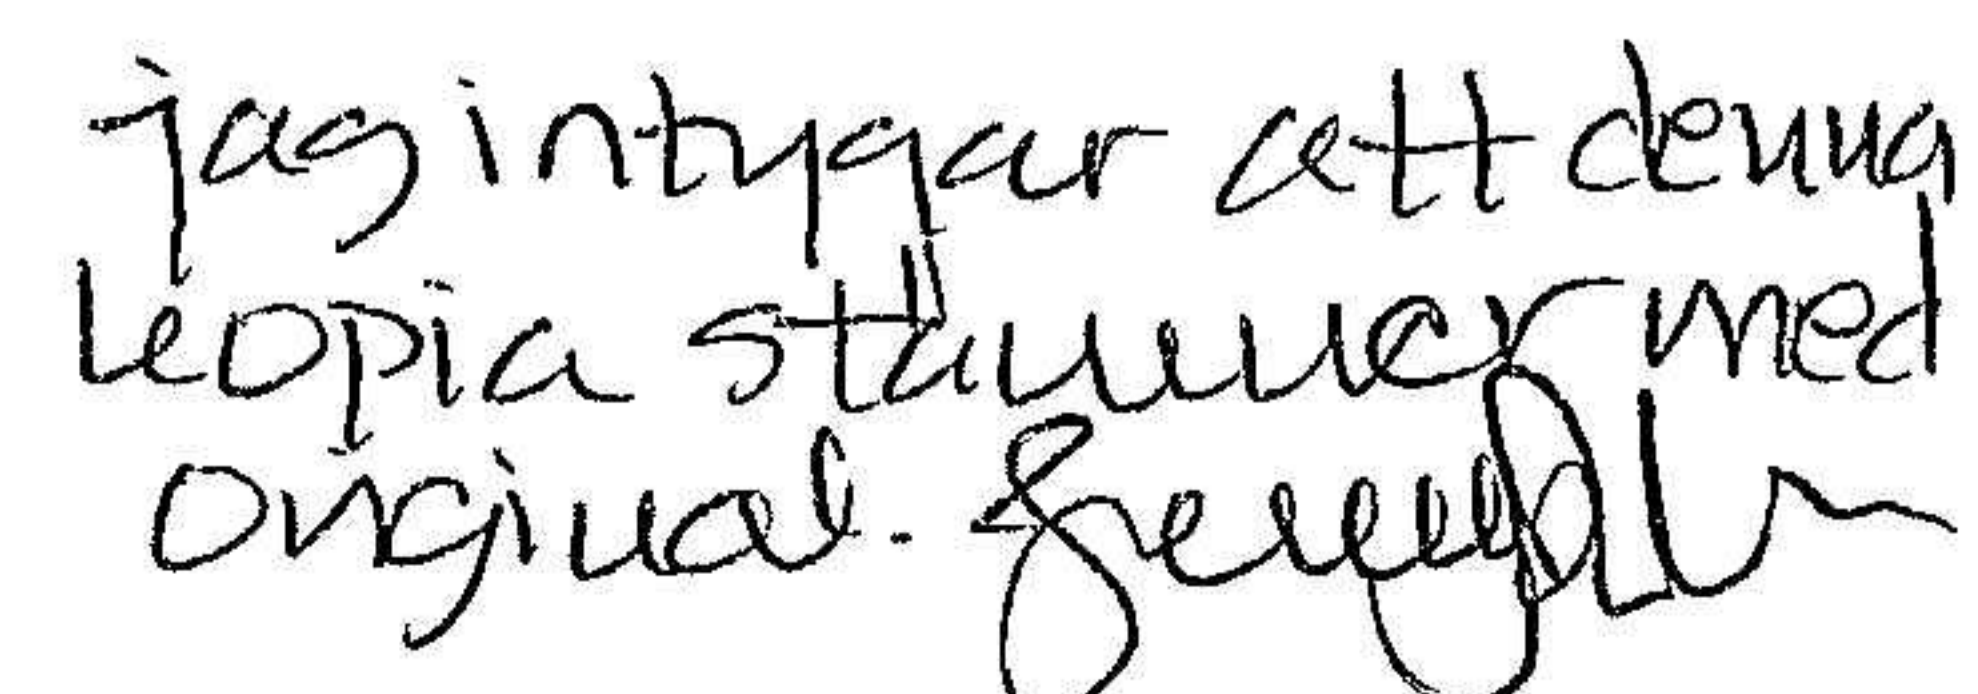 jag intygar att denna
kopia stämmer med
original.